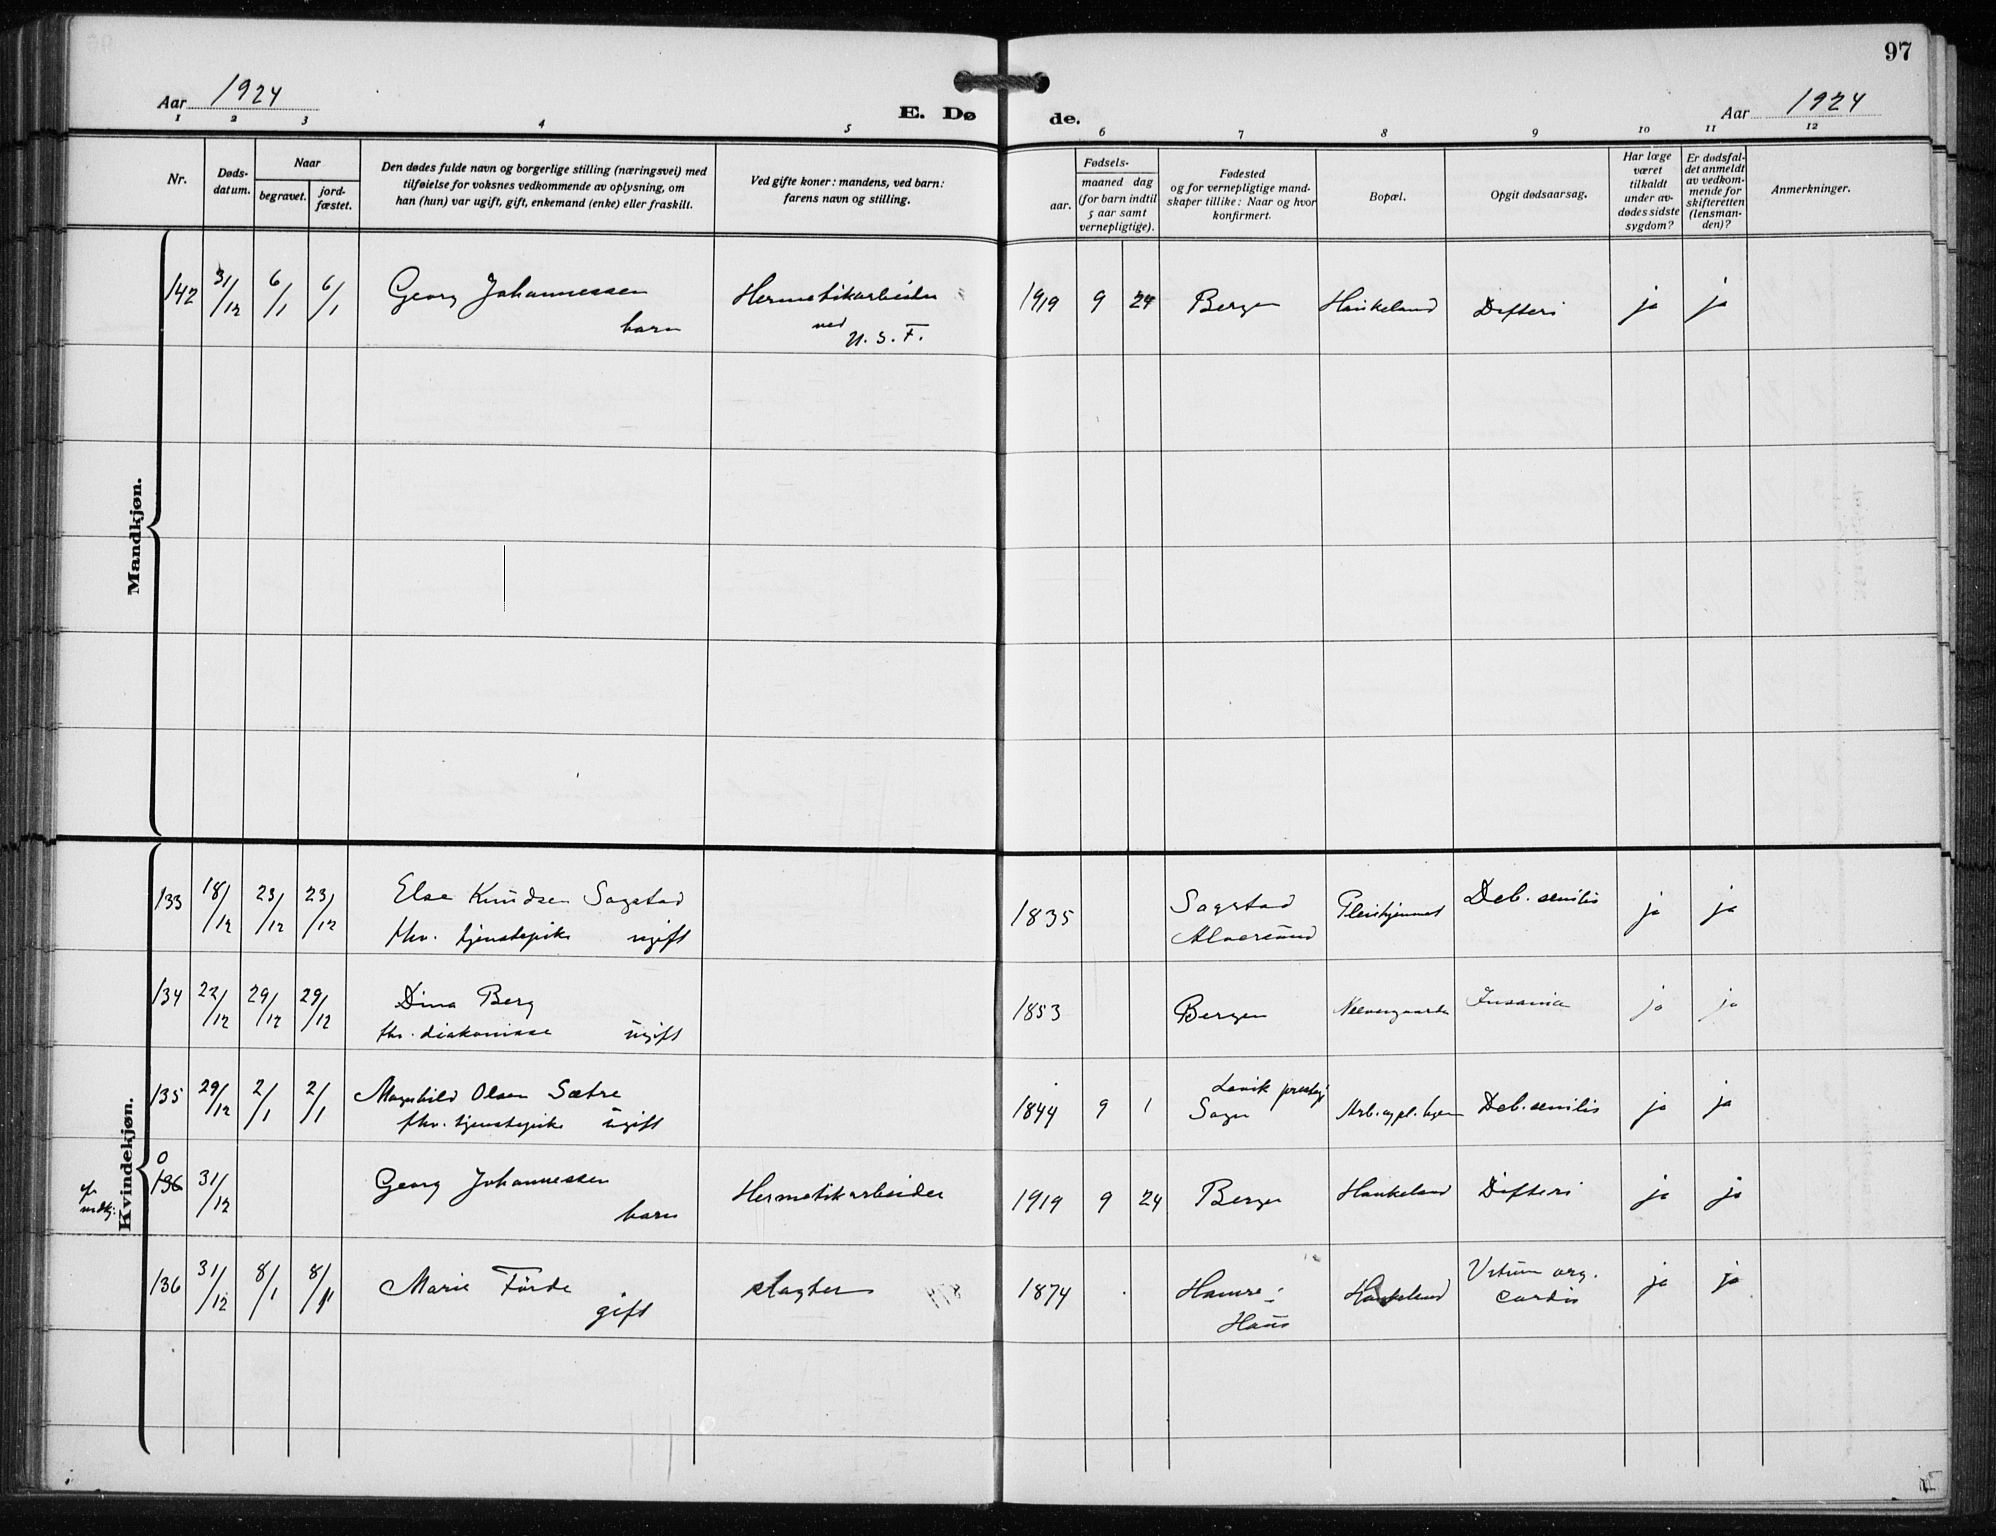 97
Aar 1924
E. Dø
de.
Aar 1924
1 2 3 4 5 6 7 8 9 10 11 12
Nr.
Døds-
datum.
Naar
begravet.
jord-
fæstet.
Den dødes fulde navn og borgerlige stilling (næringsvei) med
tilføielse for voksnes vedkommende av oplysning, om
han (hun) var ugift, gift, enkemand (enke) eller fraskilt.
Ved gifte koner: mandens, ved barn:
farens navn og stilling.
Fødsels-
aar.
maaned dag
(for barn indtil
5 aar samt
vernepligtige).
Fødested
og for vernepligtige mand-
skaper tillike: Naar og hvor
konfirmert.
Bopæl.
Opgit dødsaarsag.
Har læge
været
tilkaldt
under av-
dødes sidste
sygdom?
Er dødsfal-
det anmeldt
av vedkom-
mende for
skifteretten
(lensman-
den)?
Anmerkninger.
Mandkjøn.
142 31/12 6/1 6/1 Georg Johannessen Hermetikarbeider 1919 9 24 Bergen Haukeland Difteri ja ja
barn ved
U. S. F.
Kvindekjøn.
133 18/12 23/12 23/12 Else Knudsen Sagstad 1835 Sagstad Pleiehjemmet Deb. senilis ja ja
fhv. tjenstepike ugift Alversund
134 22/12 29/12 29/12 Dina Berg 1853 Bergen Neevengaarden Insania ja ja
fhv. diakonisse ugift
135 29/12 2/1 2/1 Magnhild Olsen Sætre 1844 9 1 Lavik prestegj Arb. og pl. hjem Deb. senilis ja ja
fhv. tjenstepike ugift Sogn
0
136 31/12 Georg Johannessen Hermetikarbeider 1919 9 24 Bergen Haukeland Difteri ja ja
barn
136 31/12 8/1 8/1 Marie Förde slagter 1874 Hamre: Haukeland Vitium org. ja ja
gift Haus cordis